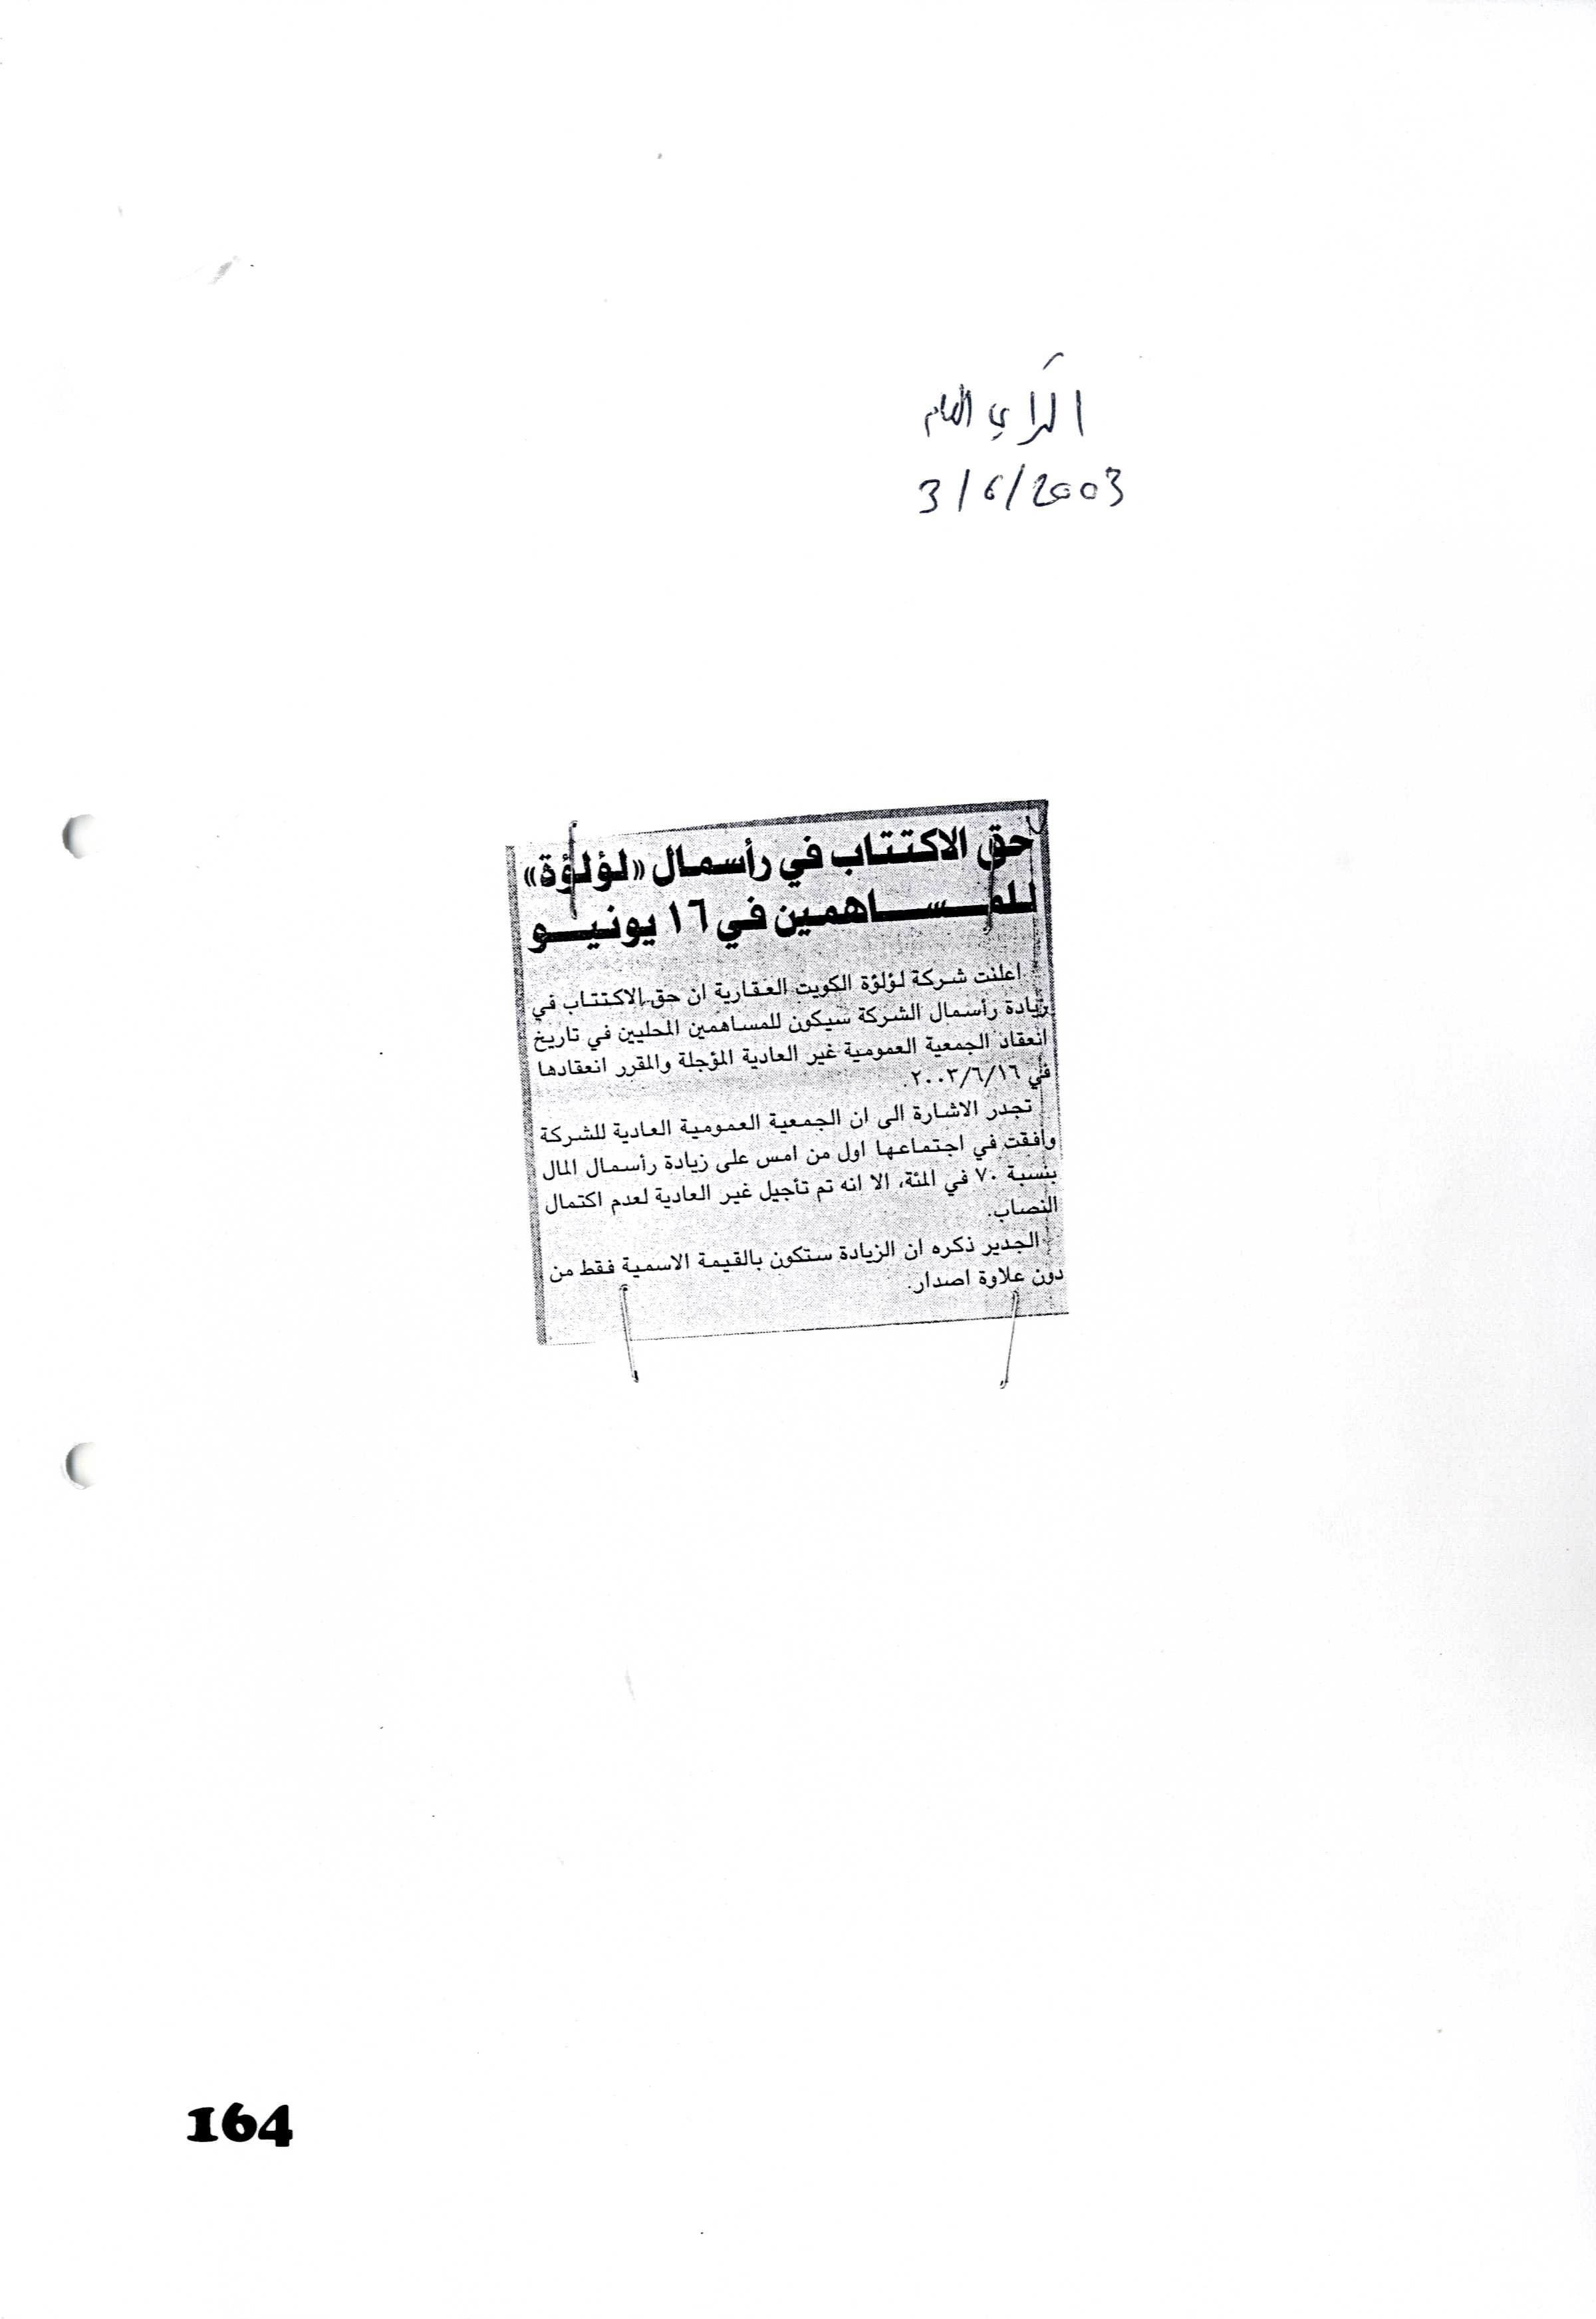 الرأي العام
3/6/2003
حق الاكتتاب في رأسمال «لؤلؤة»
للمساهمين في ١٦ يونيو
اعلنت شركة لؤلؤة الكويت العقارية ان حق الاكتتاب في
زيادة رأسمال الشركة سيكون للمساهمين المحليين في تاريخ
انعقاد الجمعية العمومية غير العادية المؤجلة والمقرر انعقادها
في ٢٠٠٣/٦/١٦.
تجدر الاشارة الى ان الجمعية العمومية العادية للشركة
وافقت في اجتماعها اول من امس على زيادة رأسمال المال
بنسبة ٧٠ في المئة، الا انه تم تأجيل غير العادية لعدم اكتمال
النصاب.
الجدير ذكره ان الزيادة ستكون بالقيمة الاسمية فقط من
دون علاوة اصدار.
164